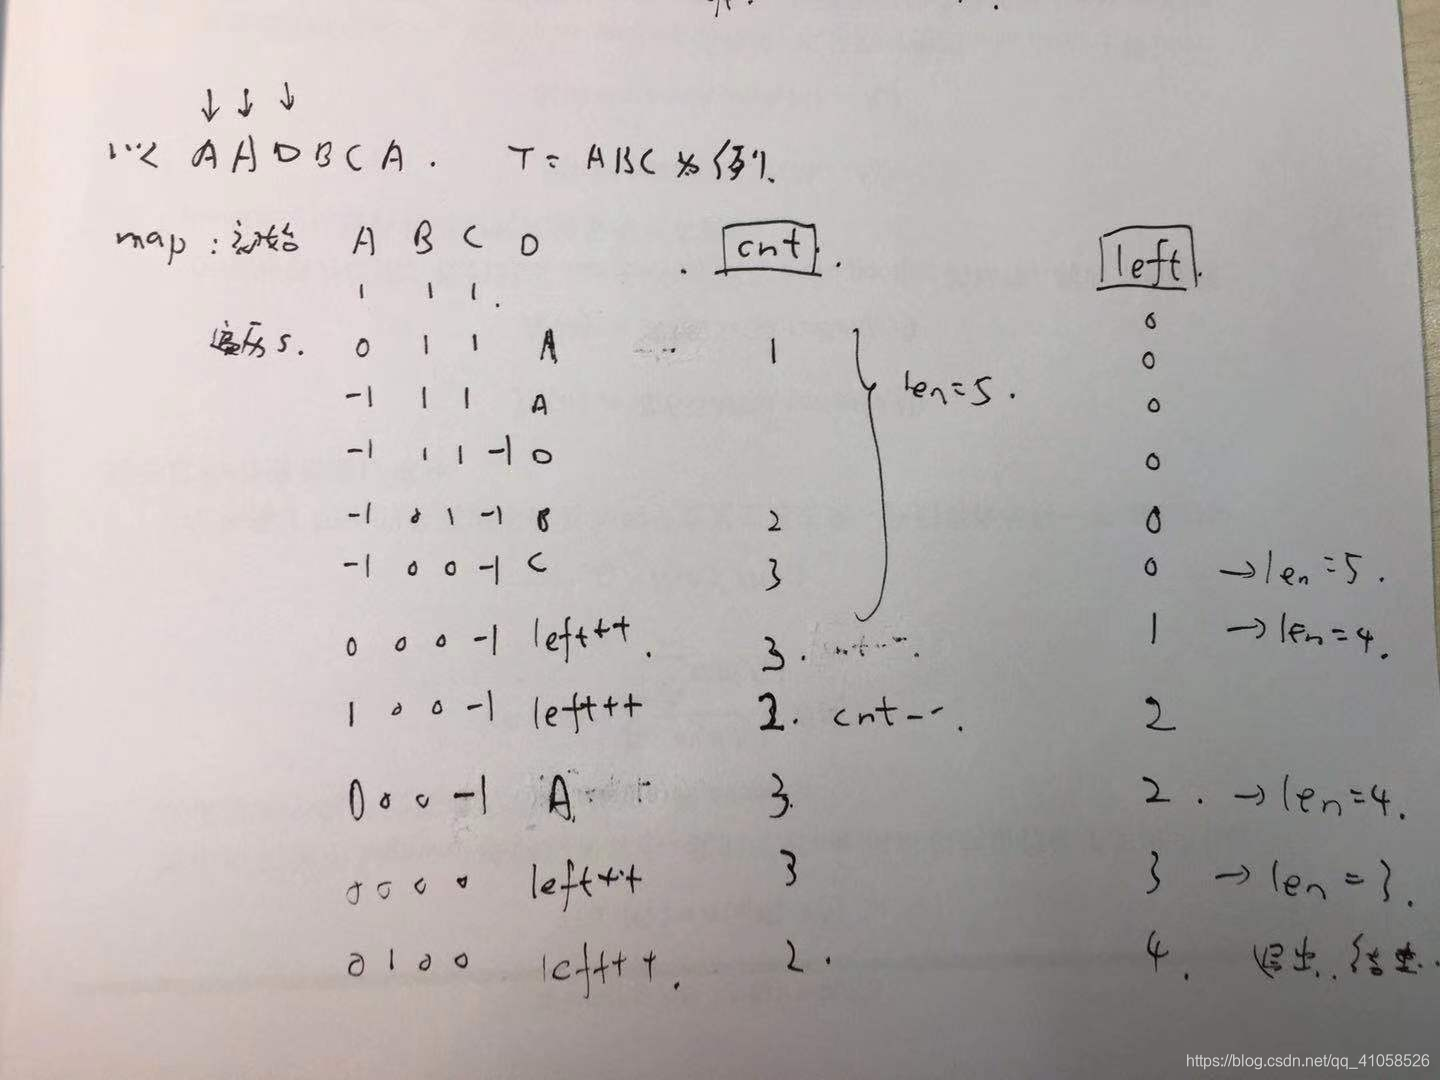 以 AADBCA. T=ABC为例.
map:初始 A B C D cnt. left.
1 1 1. 0
遍历s. 0 1 1 A 1 0
len=5.
-1 1 1 A 0
-1 1 1 -1 D 0
-1 0 1 -1 B 2 0
-1 0 0 -1 C 3 0 →len=5.
0 0 0 -1 left++. 3. 1 →len=4.
1 0 0 -1 left++ 2. cnt--. 2
0 0 0 -1 A 3. 2. →len=4.
0 0 0 0 left++ 3 3 →len=3.
0 1 0 0 left++. 2. 4.
https://blog.csdn.net/qq_41058526